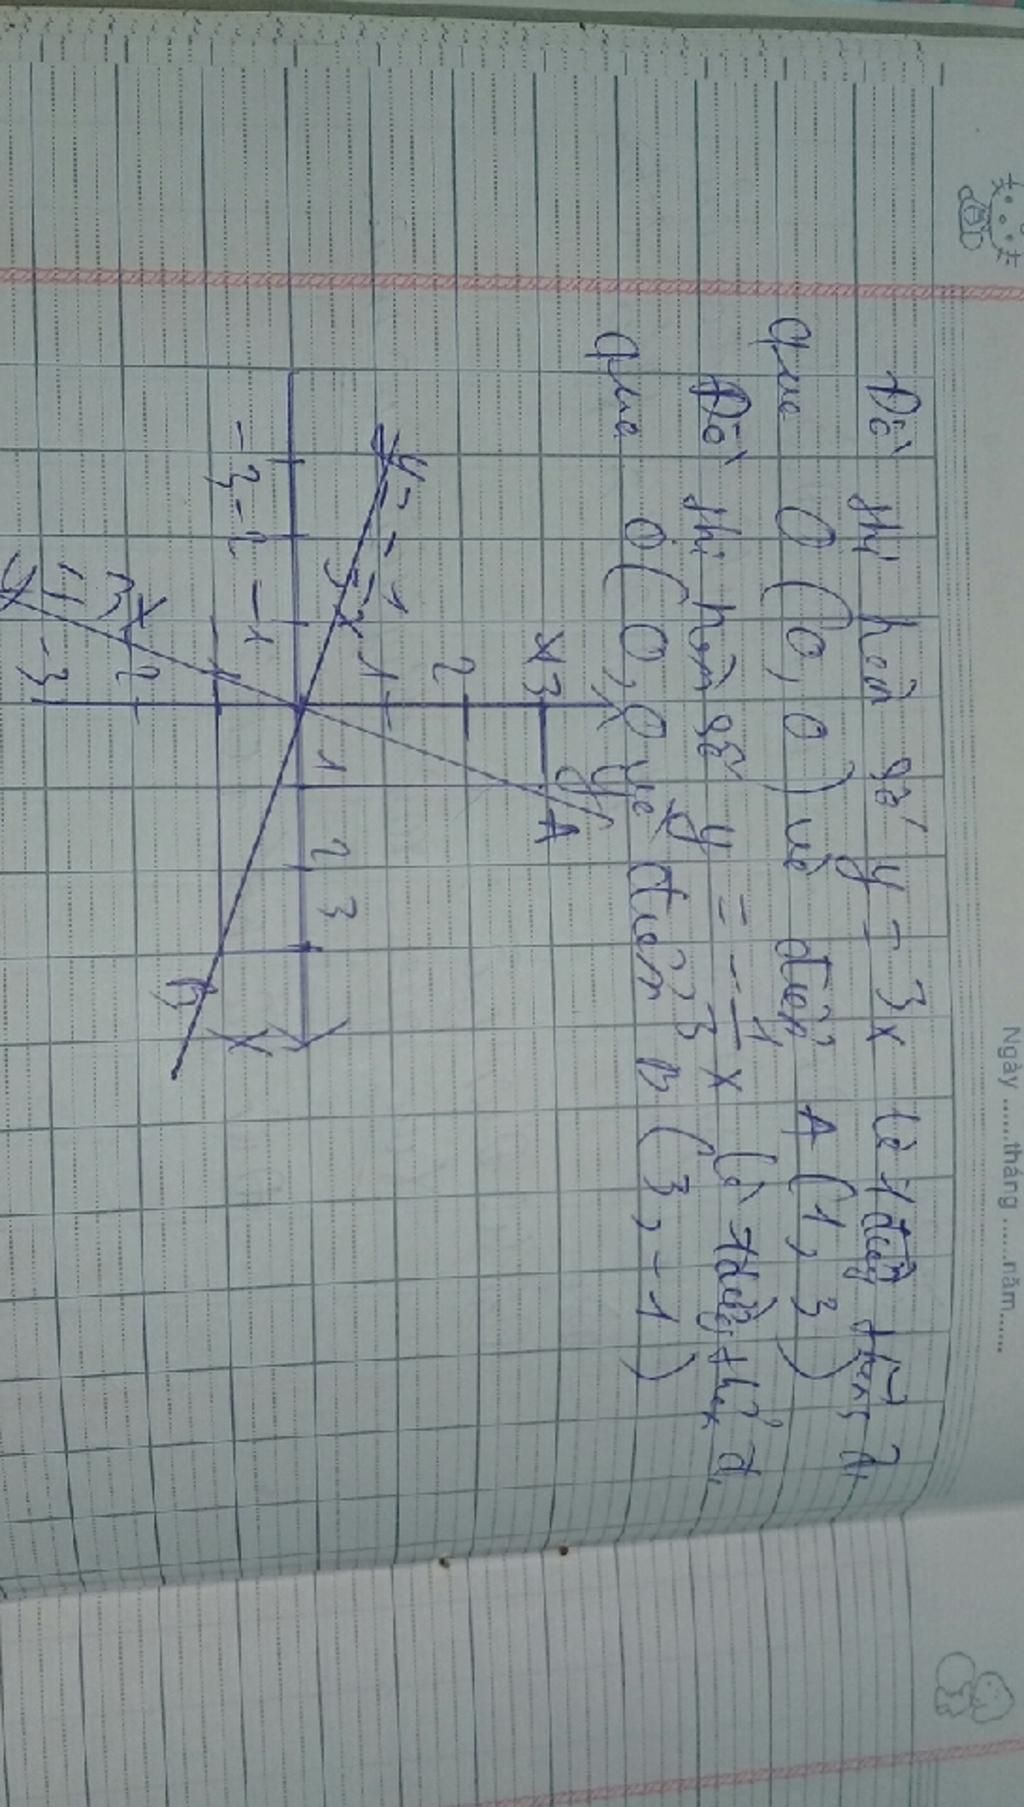 Ngày ......tháng ......năm......
Đồ thị hàm số y = 3x là 1 đường thẳng đi
qua O (0, 0) và điểm A (1, 3)
Đồ thị hàm số y = - 1/3 x là 1 đường thẳng đi
qua O (0, 0) và điểm B (3, -1)
y
3
A
2
y = - 1/3 x
1
-3 -2 -1
1 2 3
x
B
-2
-3
y = 3x